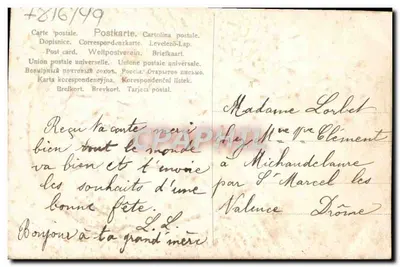 +816/49
Carte postale. Postkarte. Cartolina postale.
Dopisnice. Correspondenzkarte. Levelező-Lap.
Post card. Weltpostverein. Briefkaart.
Union postale universelle. Unione postale universale.
Всемірный почтовый союз. Россія Открытое письмо.
Karta korespondencyjna. Korespondenční lístek.
Brefkort. Brevkort. Tarjeta postal.
Reçu ta carte
bien tout le monde
va bien et t'envoie
les souhaits d'une
bonne fête.
L. L.
Bonjour à ta grand'mère
Madame Lorbet
chez Mme Vve Clément
à Michaudelaure
par St Marcel les
Valence Drôme